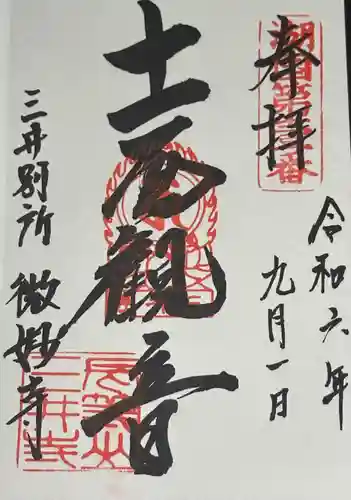 奉拝
令和六年
九月一日
十一面観音
三井別所 微妙寺
長等山
三井寺